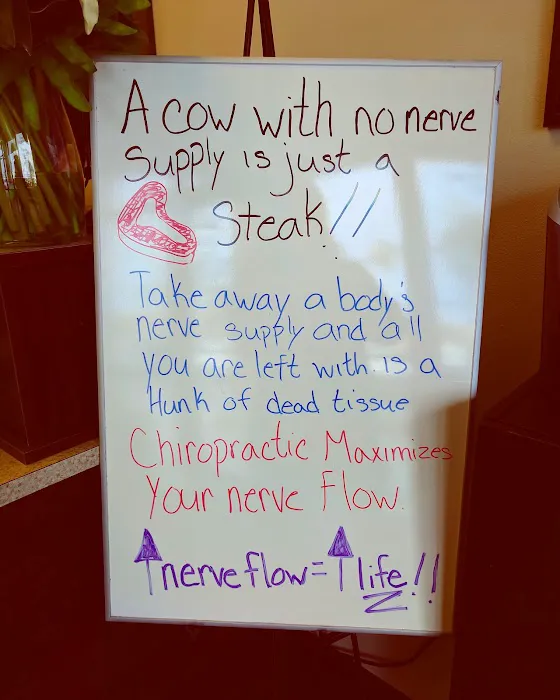 A cow with no nerve
supply is just a
Steak!!
Take away a body's
nerve supply and all
you are left with is a
Hunk of dead tissue
Chiropractic Maximizes
Your nerve flow.
↑nerve flow=↑life!!